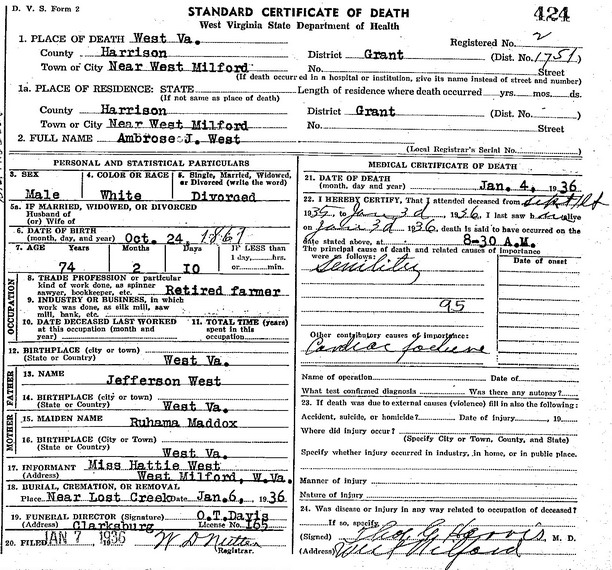 D. V. S. Form 2
STANDARD CERTIFICATE OF DEATH
424
West Virginia State Department of Health
1. PLACE OF DEATH West Va. Registered No. 2
County Harrison District Grant (Dist. No. 1751)
Town or City Near West Milford No. Street
(If death occurred in a hospital or institution, give its name instead of street and number)
1a. PLACE OF RESIDENCE: STATE Length of residence where death occurred yrs. mos. ds.
(If not same as place of death)
County Harrison District Grant
Town or City Near West Milford No. Street
2. FULL NAME Ambrose J. West
(Local Registrar's Serial No.
PERSONAL AND STATISTICAL PARTICULARS
3. SEX 4. COLOR OR RACE 5. Single, Married, Widowed, or Divorced (write the word)
Male White Divorced
5a. IF MARRIED, WIDOWED, OR DIVORCED
Husband of
(or) Wife of
6. DATE OF BIRTH
(month, day, and year) Oct. 24, 1861
7. AGE Years Months Days If LESS than
1 day, hrs.
74 2 10 or min.
OCCUPATION
8. TRADE PROFESSION or particular
kind of work done, as spinner
sawyer, bookkeeper, etc. Retired farmer
9. INDUSTRY OR BUSINESS, in which
work was done, as silk mill, saw
mill, bank, etc.
10. DATE DECEASED LAST WORKED
at this occupation (month and
year)
11. TOTAL TIME (years)
spent in this
occupation
12. BIRTHPLACE (city or town)
(State or Country) West Va.
FATHER
13. NAME
Jefferson West
14. BIRTHPLACE (city or town)
(State or Country) West Va.
MOTHER
15. MAIDEN NAME
Ruhama Maddox
16. BIRTHPLACE (City or Town)
(State or Country) West Va.
17. INFORMANT Miss Hattie West
(Address) West Milford, W.Va.
18. BURIAL, CREMATION, OR REMOVAL
Place Near Lost Creek Date Jan.6, 1936
19. FUNERAL DIRECTOR (Signature) O.T.Davis
(Address) Clarksburg License No. 165
20. FILED JAN 7 1936
Registrar.
MEDICAL CERTIFICATE OF DEATH
21. DATE OF DEATH
(month, day and year) Jan. 4, 1936
22. I HEREBY CERTIFY, That I attended deceased from
to Jan 3d, 1936. I last saw alive
on 3d 1936, death is said to have occurred on the
date stated above, at 8-30 A.M.
The principal cause of death and related causes of importance
were as follows: Date of onset
Senility
95
Other contributory causes of importance:
Cardiac failure
Name of operation Date of
What test confirmed diagnosis Was there any autopsy?
23. If death was due to external causes (violence) fill in also the following:
Accident, suicide, or homicide? Date of injury, 19
Where did injury occur?
(Specify City or Town, County, and State)
Specify whether injury occurred in industry, in home, or in public place.
Manner of injury
Nature of injury
24. Was disease or injury in any way related to occupation of deceased?
If so, specify
(Signed) M. D.
(Address) West Milford